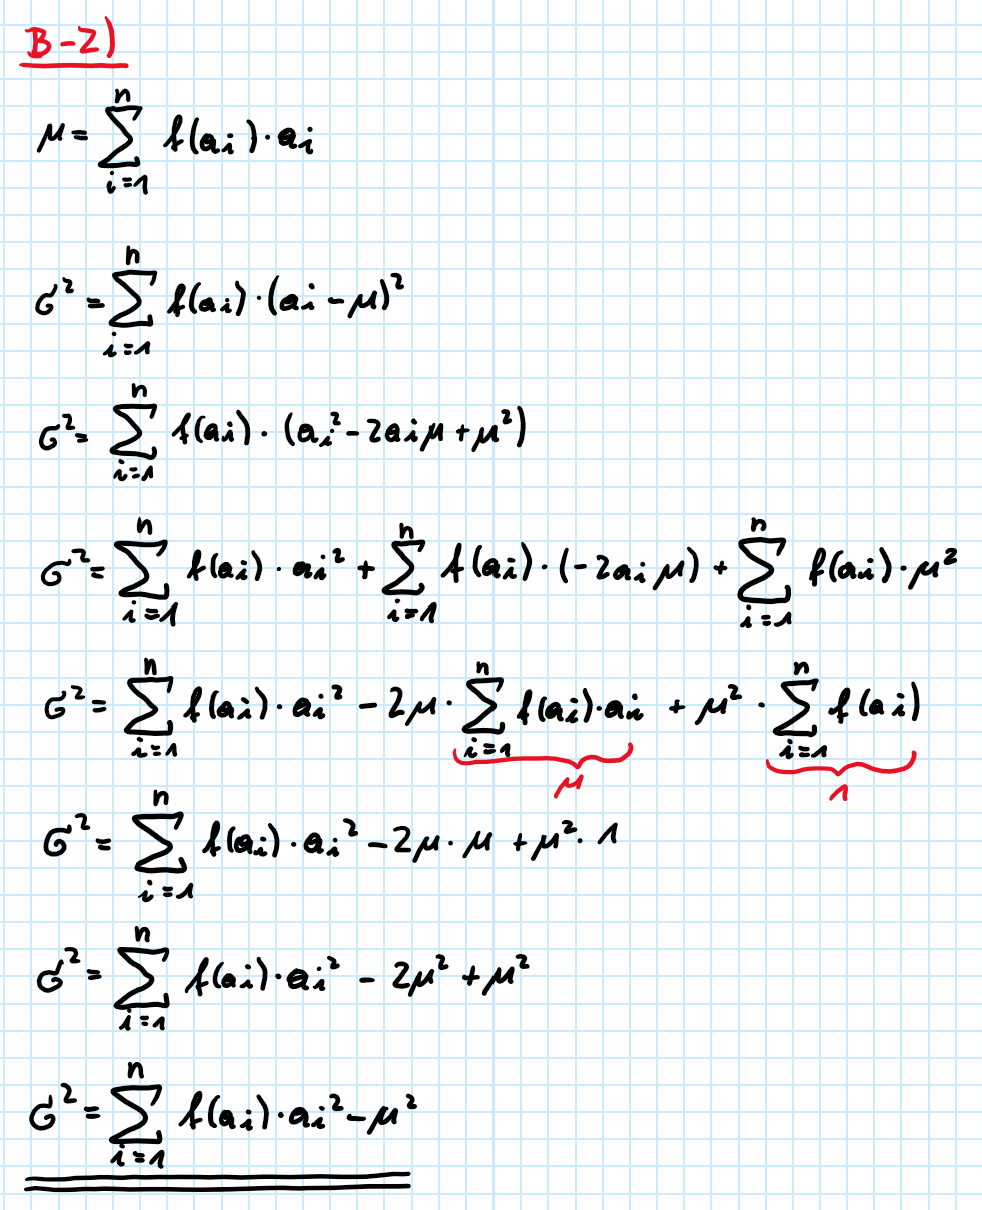 B-2)
μ = ∑_{i=1}^{n} f(a_i) · a_i
σ² = ∑_{i=1}^{n} f(a_i) · (a_i - μ)²
σ² = ∑_{i=1}^{n} f(a_i) · (a_i² - 2a_iμ + μ²)
σ² = ∑_{i=1}^{n} f(a_i) · a_i² + ∑_{i=1}^{n} f(a_i) · (-2a_i μ) + ∑_{i=1}^{n} f(a_i) · μ²
σ² = ∑_{i=1}^{n} f(a_i) · a_i² - 2μ · ∑_{i=1}^{n} f(a_i) · a_i + μ² · ∑_{i=1}^{n} f(a_i)
μ 1
σ² = ∑_{i=1}^{n} f(a_i) · a_i² - 2μ · μ + μ² · 1
σ² = ∑_{i=1}^{n} f(a_i) · a_i² - 2μ² + μ²
σ² = ∑_{i=1}^{n} f(a_i) · a_i² - μ²